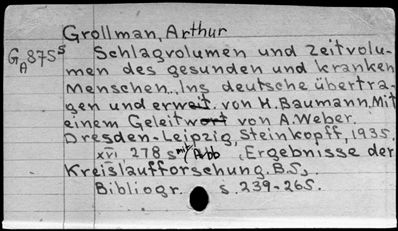 Grollman, Arthur
GA875s Schlagvolumen und Zeitvolu-
men des gesunden und kranken
Menschen.. Ins deutsche übertra-
gen und erweit. von H. Baumann. Mit
einem Geleitwort von A. Weber.
Dresden-Leipzig, Steinkopff, 1935.
XVI, 278 s. mit Abb. (Ergebnisse der
Kreislaufforschung. B.5)
Bibliogr. s. 239-265.